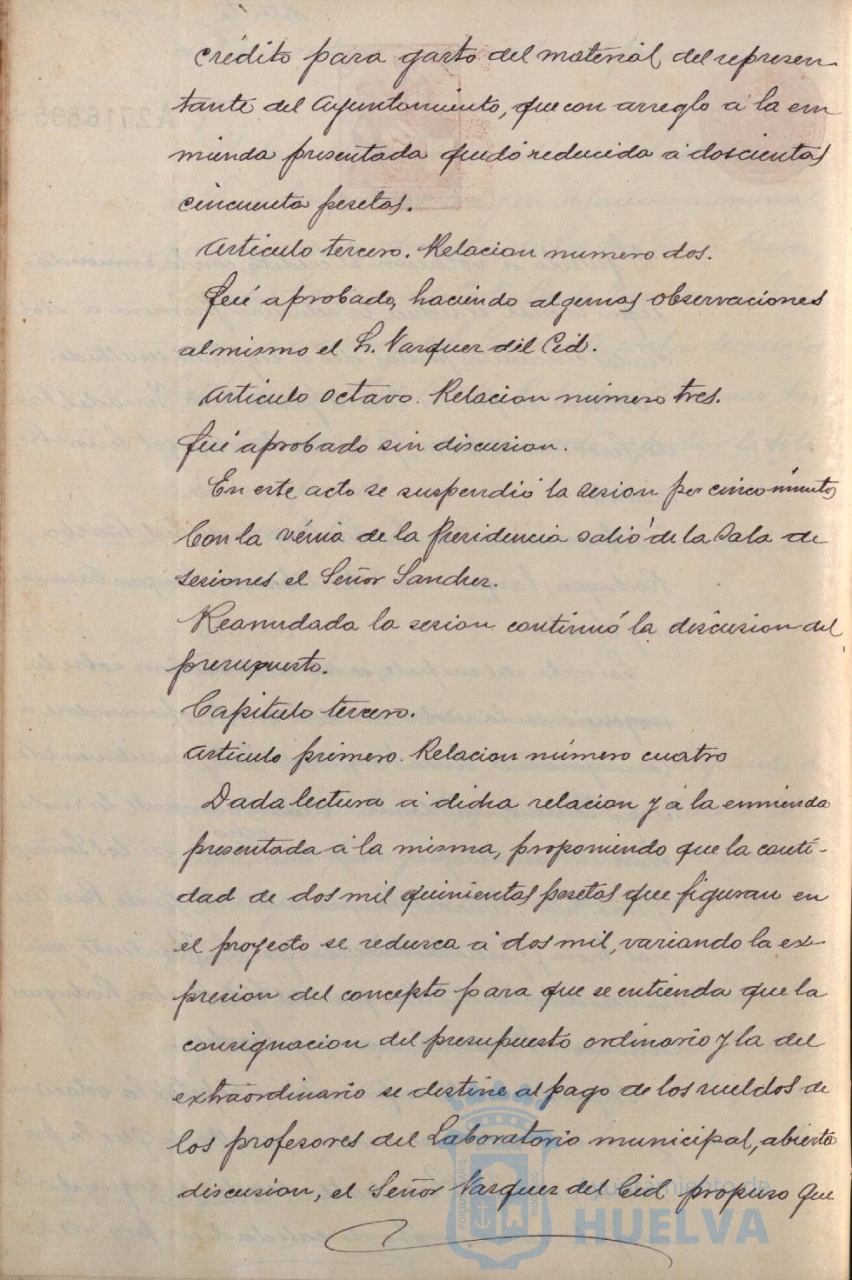 crédito para gasto del material, del represen-
tante del Ayuntamiento, que con arreglo á la en
mienda presentada quedó reducida á doscientas
cincuenta pesetas.
Articulo tercero. Relacion numero dos.
Fué aprobado, haciendo algunas observaciones
al mismo el Sr. Vazquez del Cid.
Articulo octavo. Relacion número tres.
Fué aprobado sin discusion.
En este acto se suspendió la sesion por cinco minutos
Con la vénia de la Presidencia salió de la Sala de
sesiones el Señor Sanchez.
Reanudada la sesion continuó la discusion del
presupuesto.
Capitulo tercero.
Articulo primero. Relacion número cuatro
Dada lectura á dicha relacion y á la enmienda
presentada á la misma, proponiendo que la canti-
dad de dos mil quinientas pesetas que figuran en
el proyecto se reduzca á dos mil, variando la ex-
presion del concepto para que se entienda que la
consignacion del presupuesto ordinario y la del
extraordinario se destine al pago de los sueldos de
los profesores del Laboratorio municipal, abierta
discusion, el Señor Vazquez del Cid propuso que
Ayuntamiento de
HUELVA